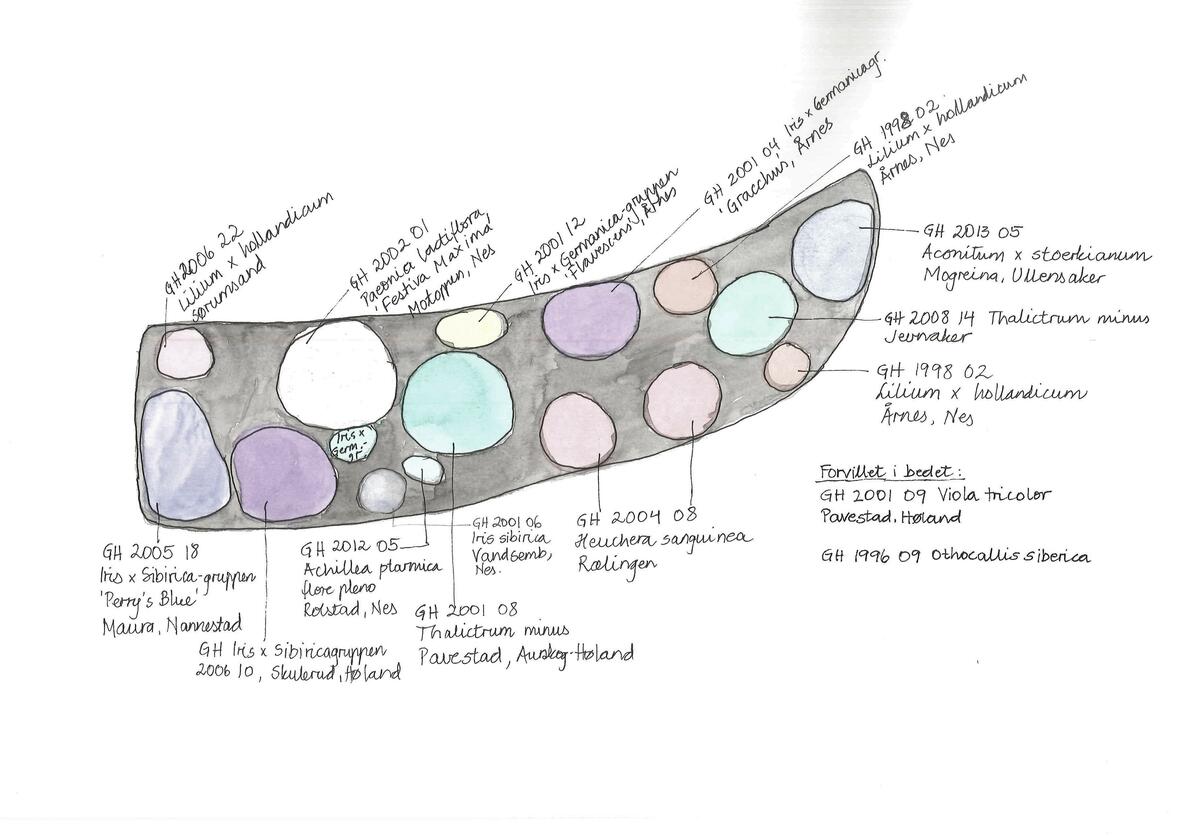 GH 2006 22
Lilium x hollandicum
Sørumsand
GH 2002 01
Paeonia lactiflora,
'Festiva Maxima'
Motoppen, Nes
GH 2001 12
Iris x Germanica-gruppen
'Flavescens', Årnes
GH 2001 04 Iris x Germanicagr.
'Gracchus', Årnes
GH 1998 02
Lilium x hollandicum
Årnes, Nes
GH 2013 05
Aconitum x stoerkianum
Mogreina, Ullensaker
GH 2008 14 Thalictrum minus
Jevnaker
GH 1998 02
Lilium x hollandicum
Årnes, Nes
Iris x
Germ.-
gr.
Forvillet i bedet:
GH 2001 09 Viola tricolor
Pavestad, Høland
GH 1996 09 Othocallis siberica
GH 2005 18
Iris x Sibirica-gruppen
'Perry's Blue'
Maura, Nannestad
GH Iris x Sibiricagruppen
2006 10, Skulerud, Høland
GH 2012 05
Achillea ptarmica
flore pleno
Rolstad, Nes
GH 2001 06
Iris sibirica
Vandsemb,
Nes.
GH 2001 08
Thalictrum minus
Pavestad, Aurskog-Høland
GH 2004 08
Heuchera sanguinea
Rælingen